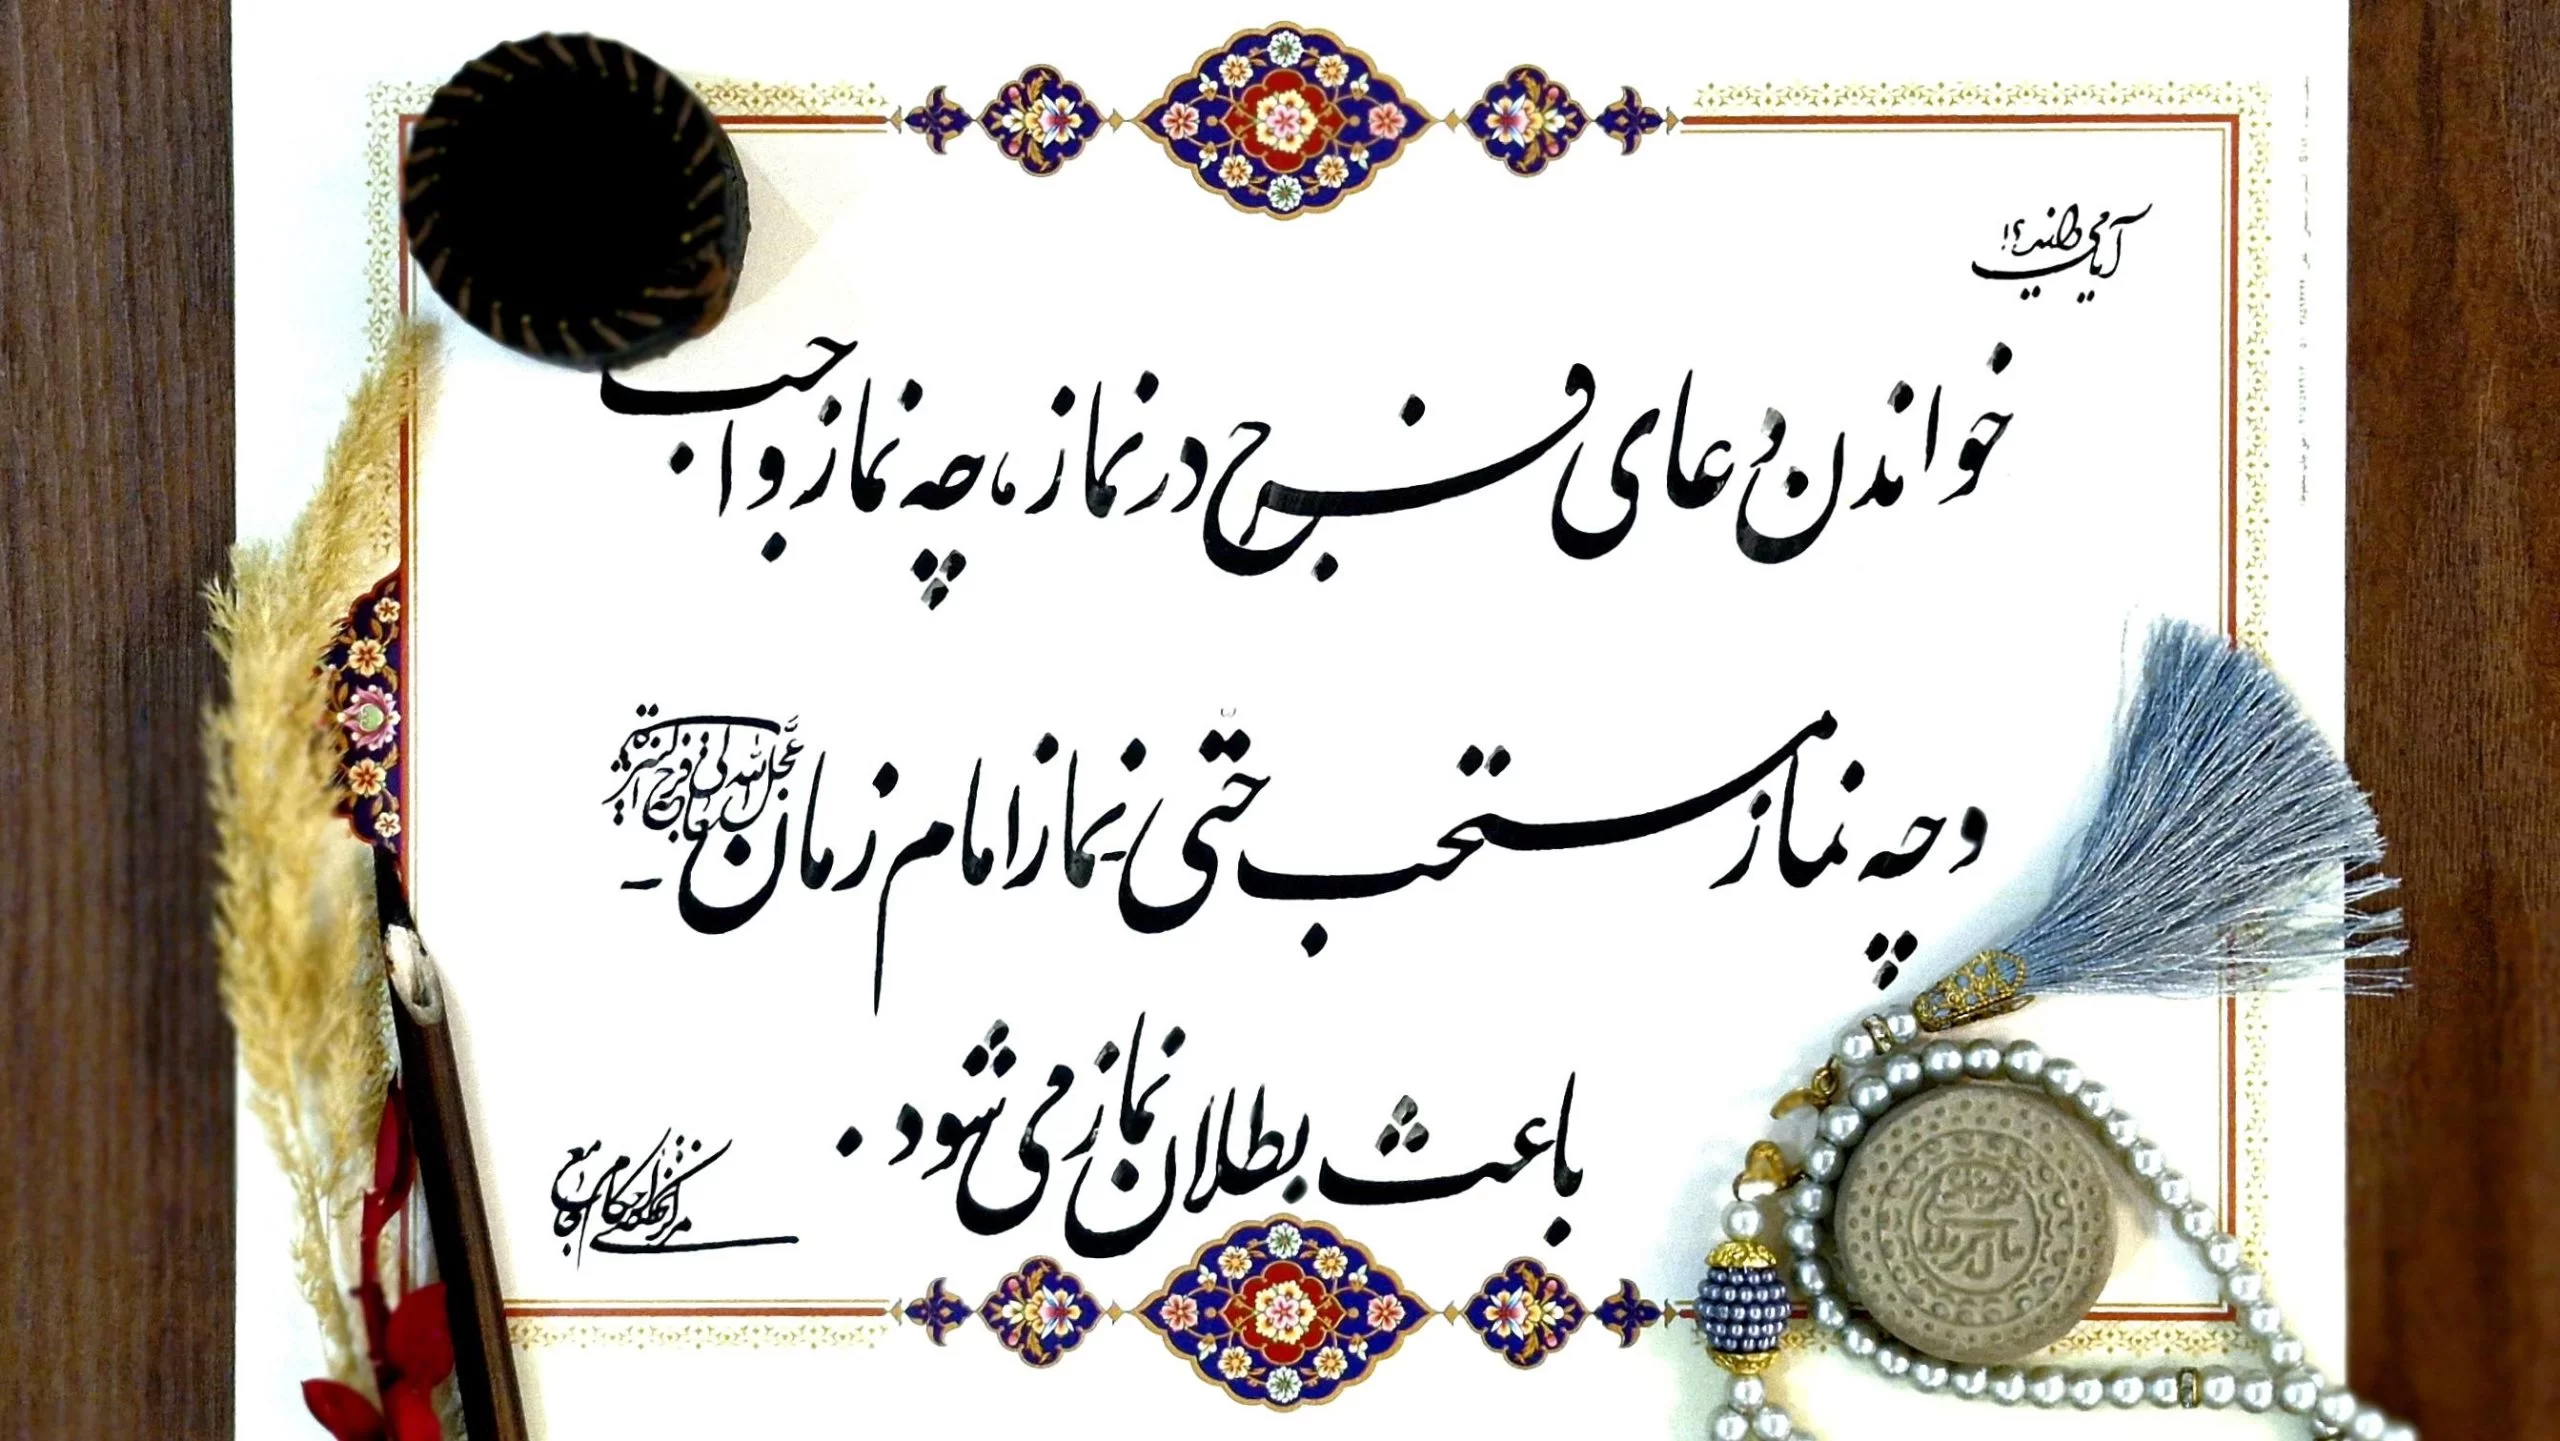 آیا می‌دانید؟!
خواندن دعای فرج در نماز، چه نماز واجب
و چه نماز مستحب حتّی نماز امام زمان عجّل الله تعالی فرجه الشریف -
باعث بطلان نماز می‌شود.
مرکز تخصصی احکام جامع